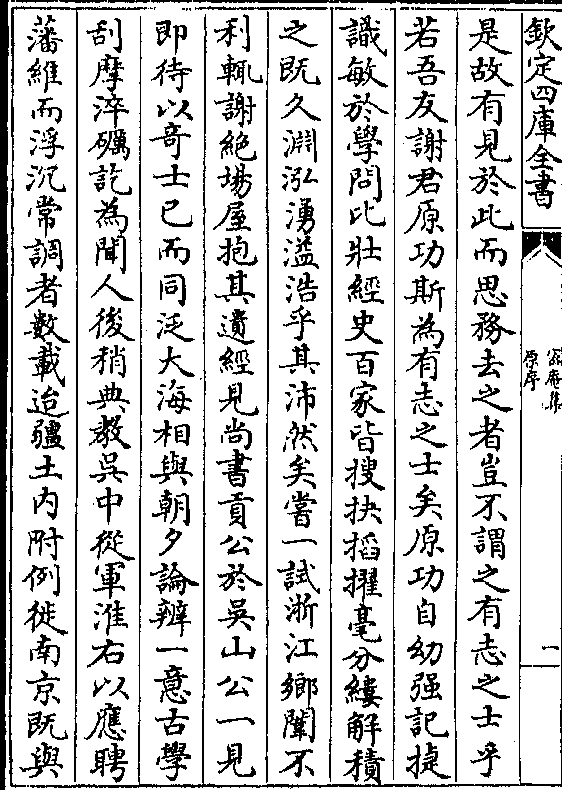 欽定四庫全書
密庵集
原序
一
是故有見於此而思務去之者豈不謂之有志之士乎
若吾友謝君原功斯為有志之士矣原功自幼强記捷
識敏於學問比壯經史百家皆搜抉搯擢毫分縷解積
之既久淵泓湧溢浩乎其沛然矣嘗一試浙江鄉闈不
利輒謝絶場屋抱其遺經見尚書貢公於吳山公一見
即待以竒士已而同泛大海相與朝夕論辨一意古學
刮摩淬礪訖為聞人後稍典教吳中從軍淮右以應聘
藩維而浮沉常調者數載迨疆土内附例徙南京既與